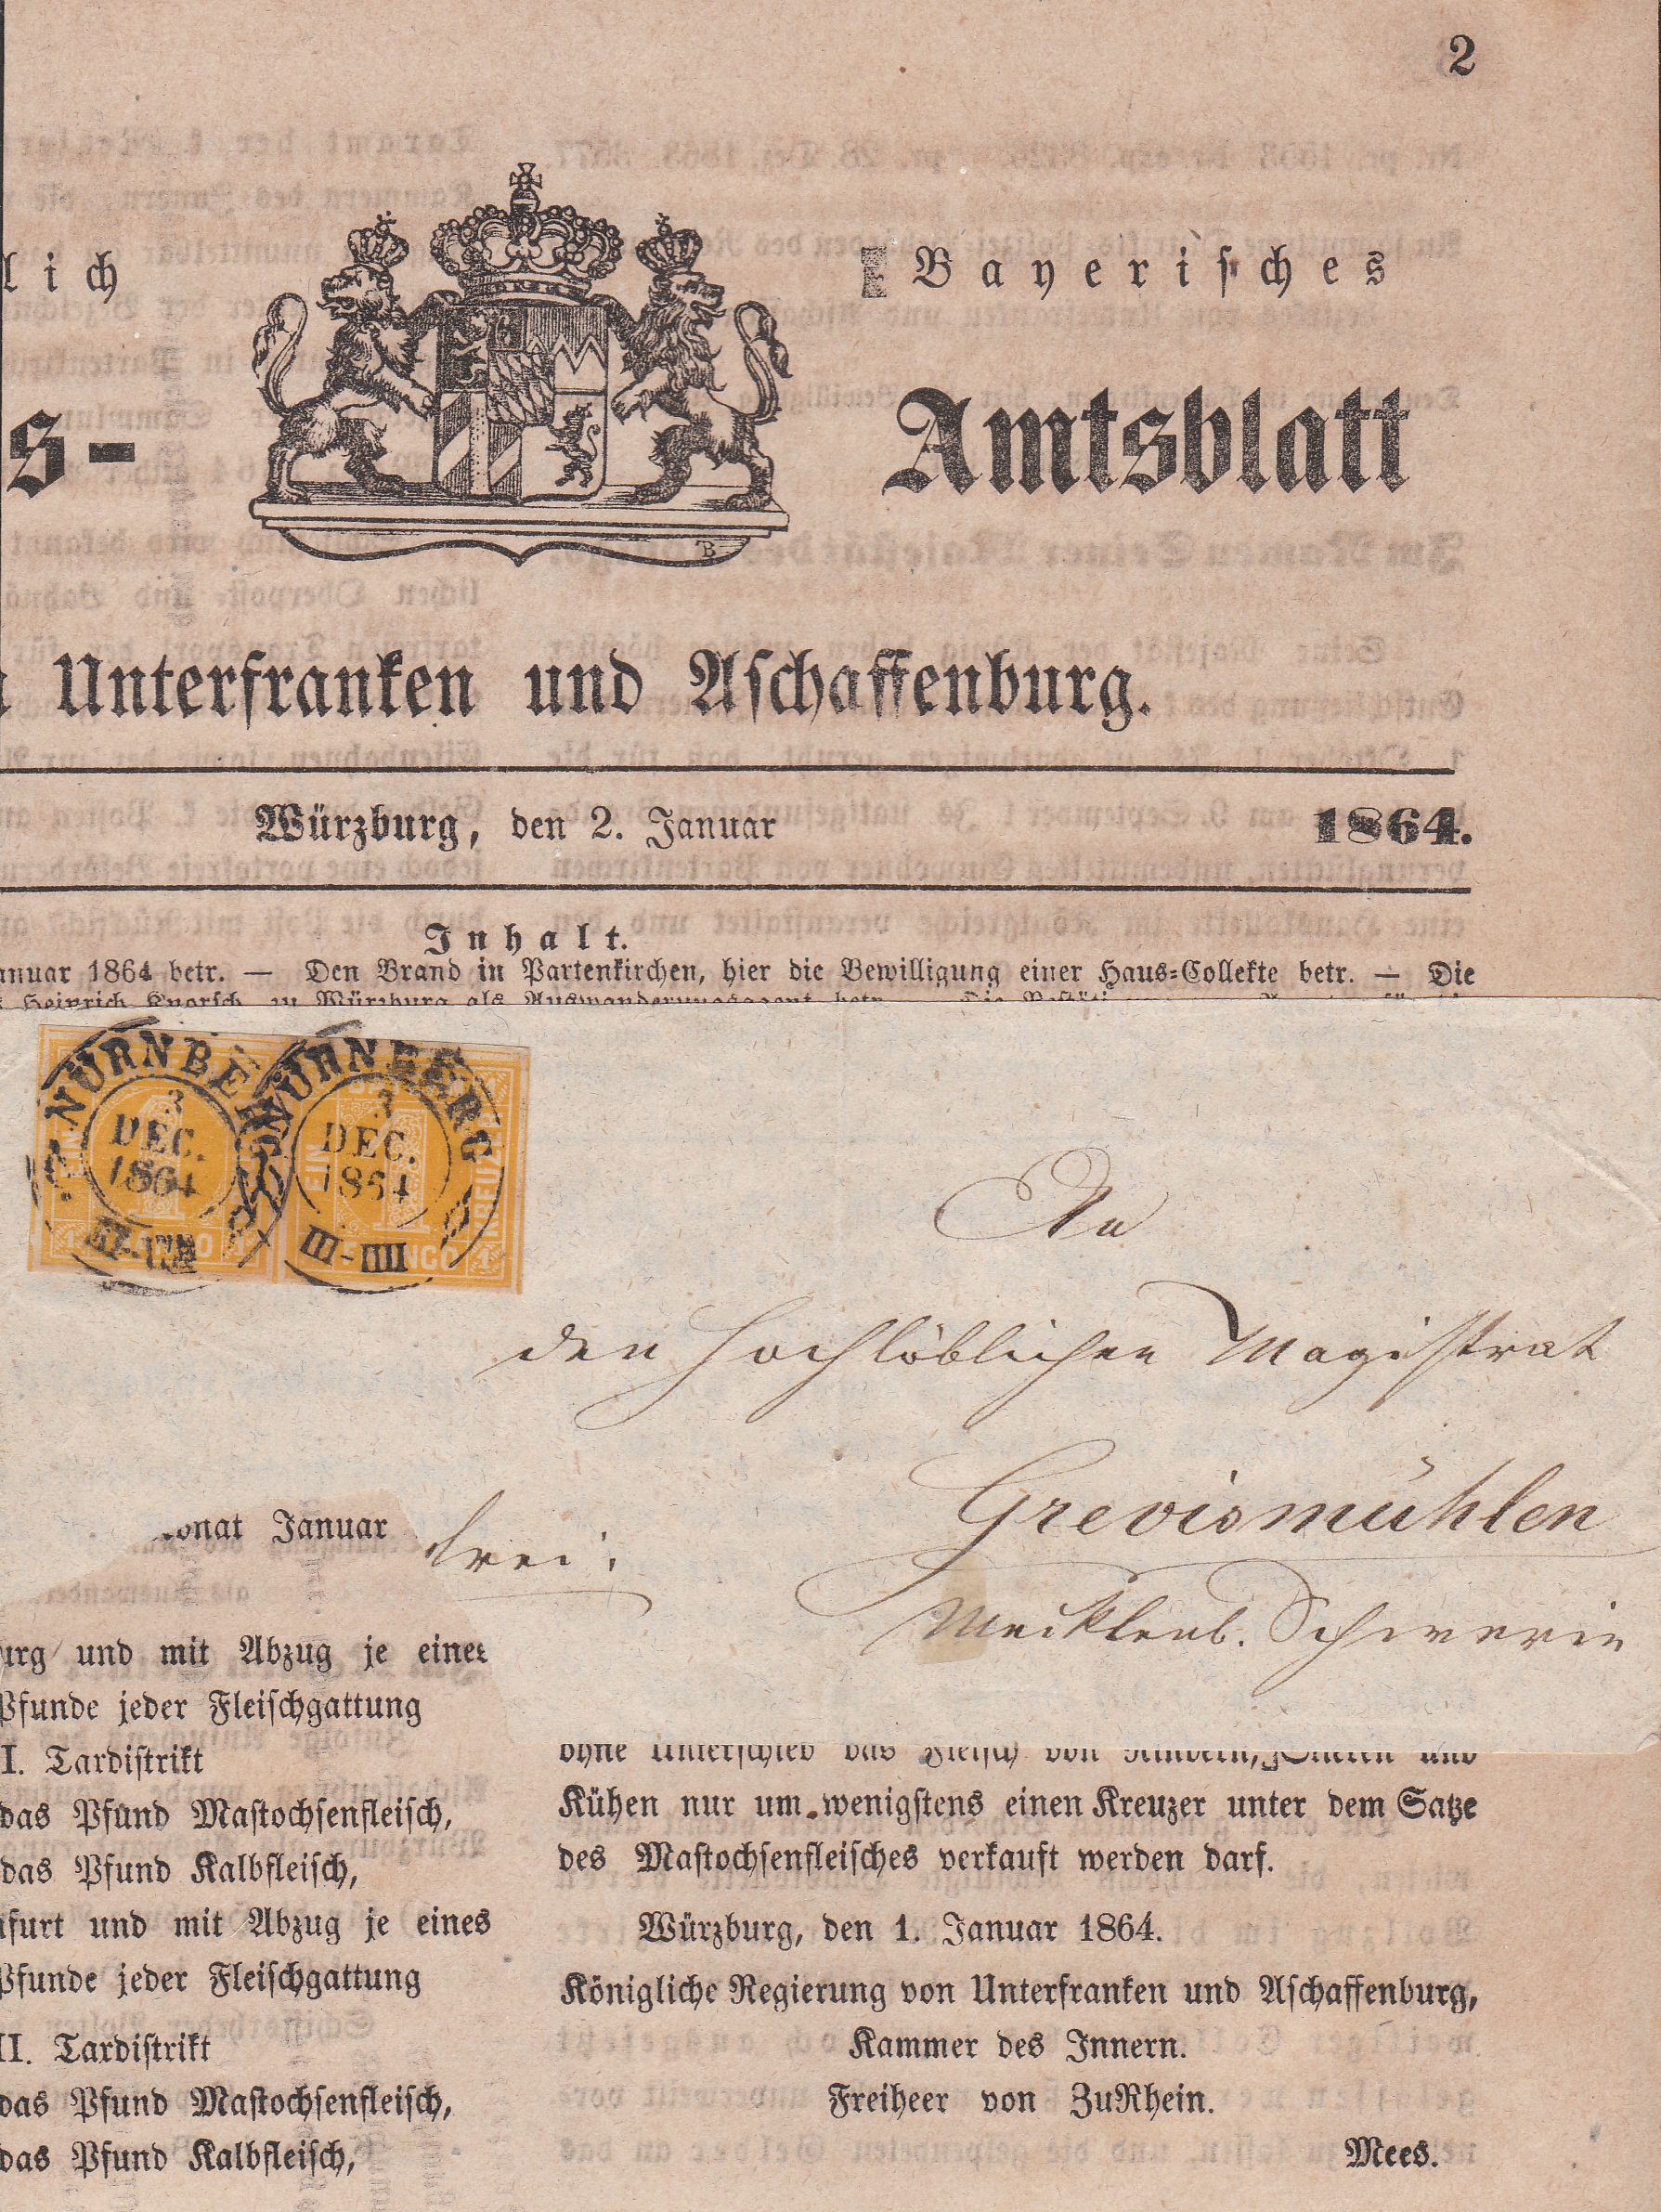 2
lich
Bayerisches
s-
Amtsblatt
Unterfranken und Aschaffenburg.
Würzburg, den 2. Januar
1864.
Inhalt.
anuar 1864 betr. — Den Brand in Partenkirchen, hier die Bewilligung einer Haus-Collekte betr. — Die
Heinrich Knorsch zu Würzburg als Auswanderungsagent betr.
NÜRNBERG
3
DEC.
1864
NÜRNBERG
3
DEC.
1864
III-IIII
EIN
KREUZER
1
An
den Hochlöblichen Magistrat
Grevismühlen
Mecklenb. Schwerin
frei.
onat Januar
urg und mit Abzug je eines
Pfunde jeder Fleischgattung
I. Taxdistrikt
das Pfund Mastochsenfleisch,
das Pfund Kalbfleisch,
furt und mit Abzug je eines
Pfunde jeder Fleischgattung
II. Taxdistrikt
das Pfund Mastochsenfleisch,
das Pfund Kalbfleisch,
ohne Unterschied das Fleisch von Rindern, Stieren und
Kühen nur um wenigstens einen Kreuzer unter dem Satze
des Mastochsenfleisches verkauft werden darf.
Würzburg, den 1. Januar 1864.
Königliche Regierung von Unterfranken und Aschaffenburg,
Kammer des Innern.
Freiheer von ZuRhein.
Mees.